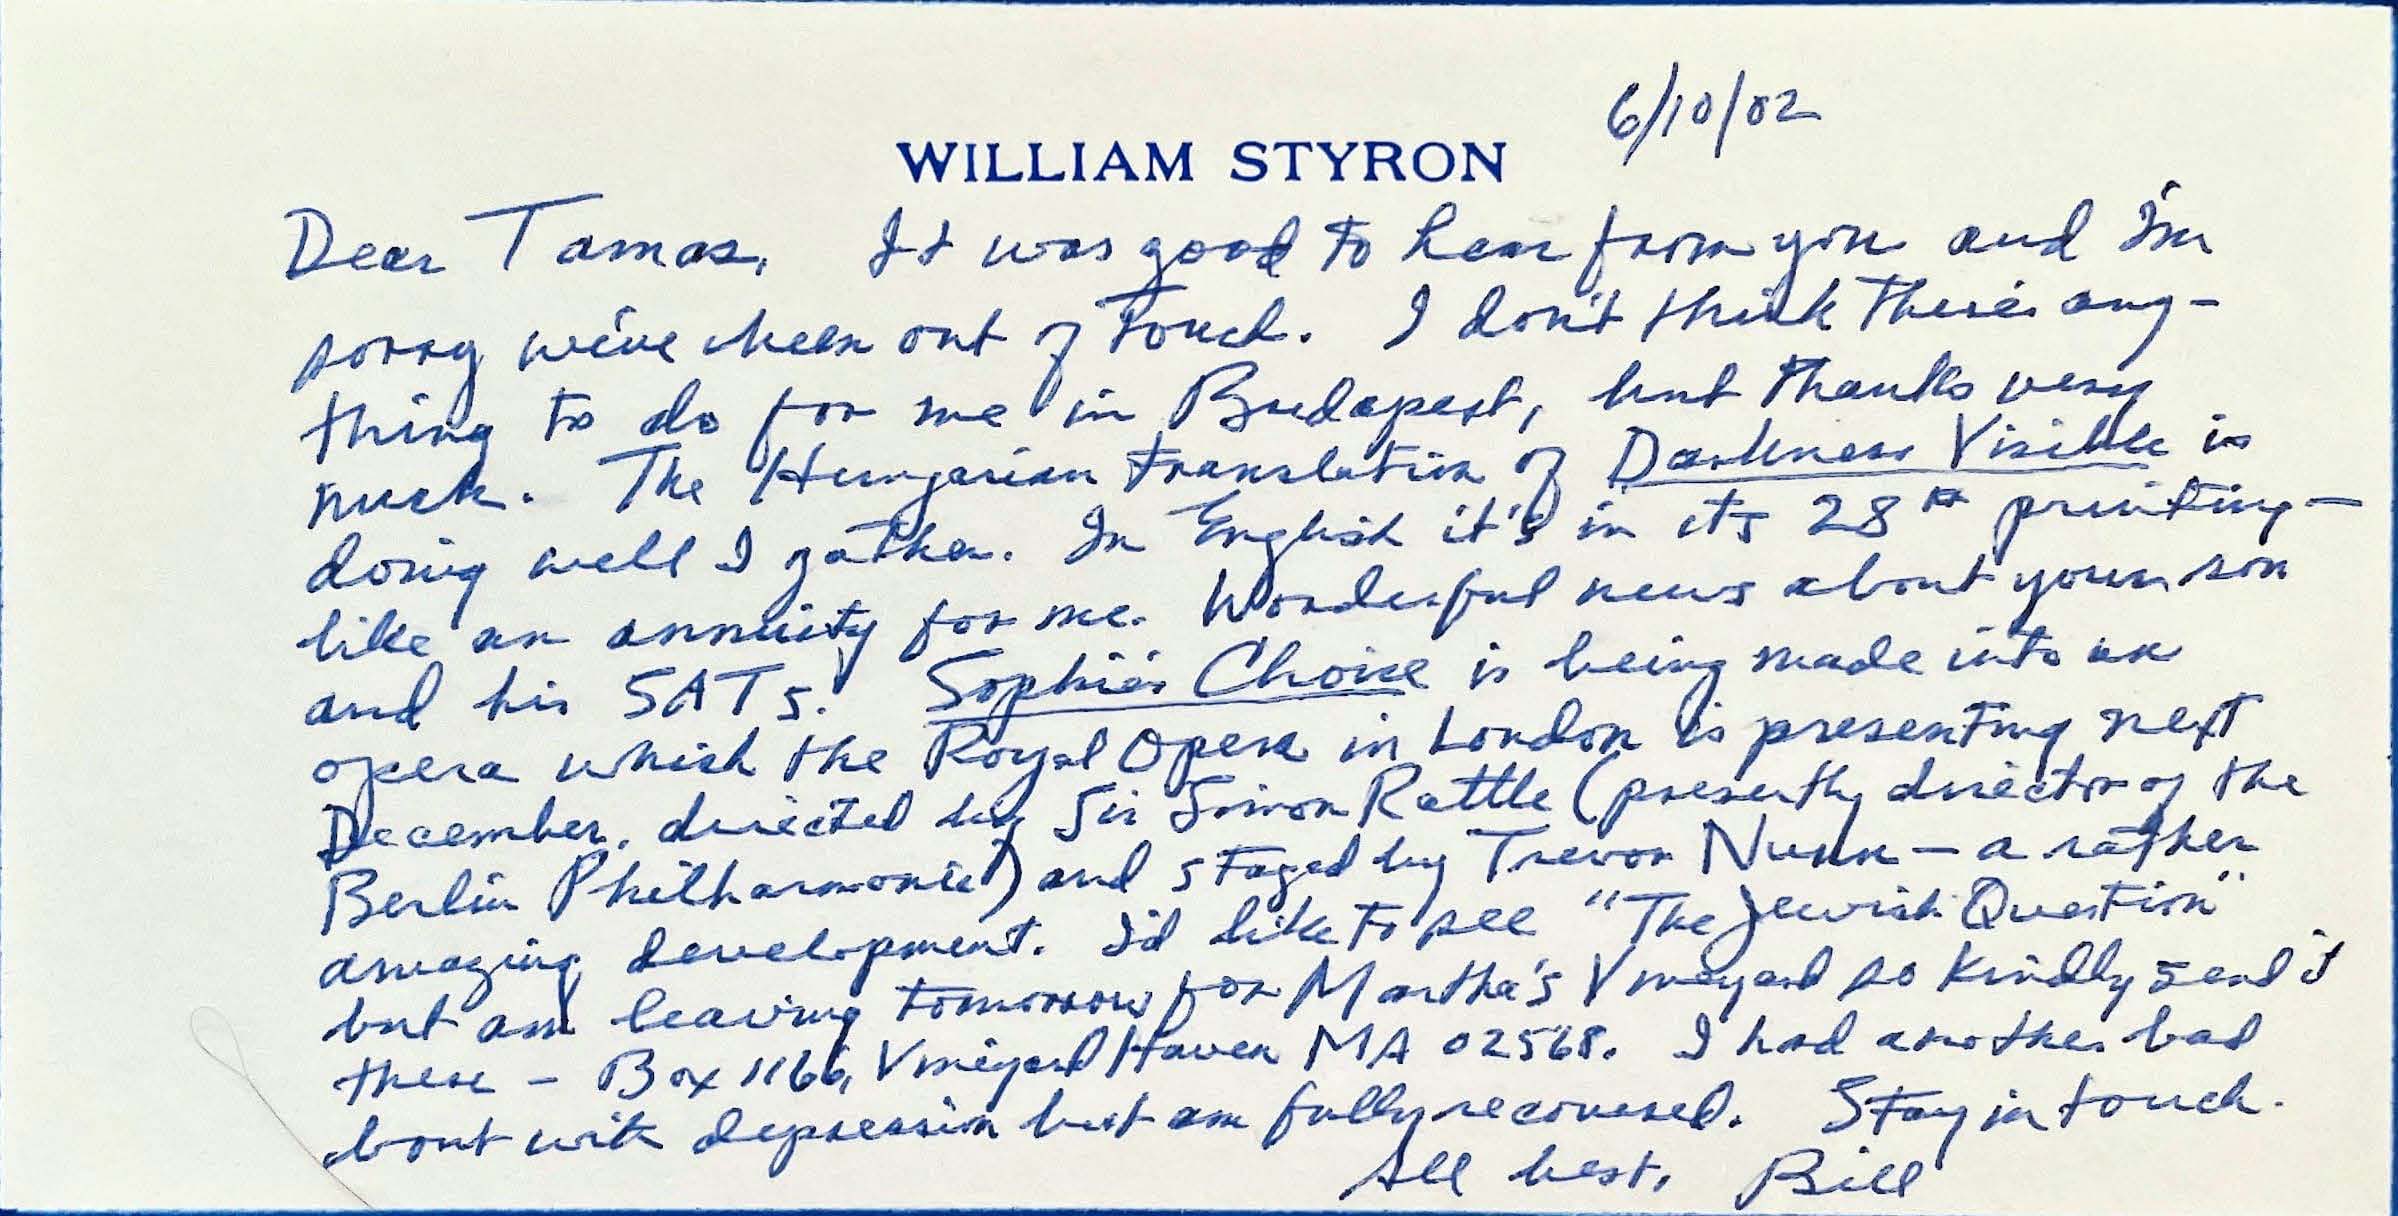 6/10/02
WILLIAM STYRON
Dear Tamas, It was good to hear from you and I'm
sorry we've been out of touch. I don't think there's any-
thing to do for me in Budapest, but thanks very
much. The Hungarian translation of Darkness Visible is
doing well I gather. In English it's in its 28th printing—
like an annuity for me. Wonderful news about your son
and his SATs. Sophie's Choice is being made into an
opera which the Royal Opera in London is presenting next
December, directed by Sir Simon Rattle (presently director of the
Berlin Philharmonic) and staged by Trevor Nunn — a rather
amazing development. I'd like to see "The Jewish Question"
but am leaving tomorrow for Martha's Vineyard so kindly send it
there — Box 1166, Vineyard Haven MA 02568. I had another bad
bout with depression but am fully recovered. Stay in touch.
All best, Bill